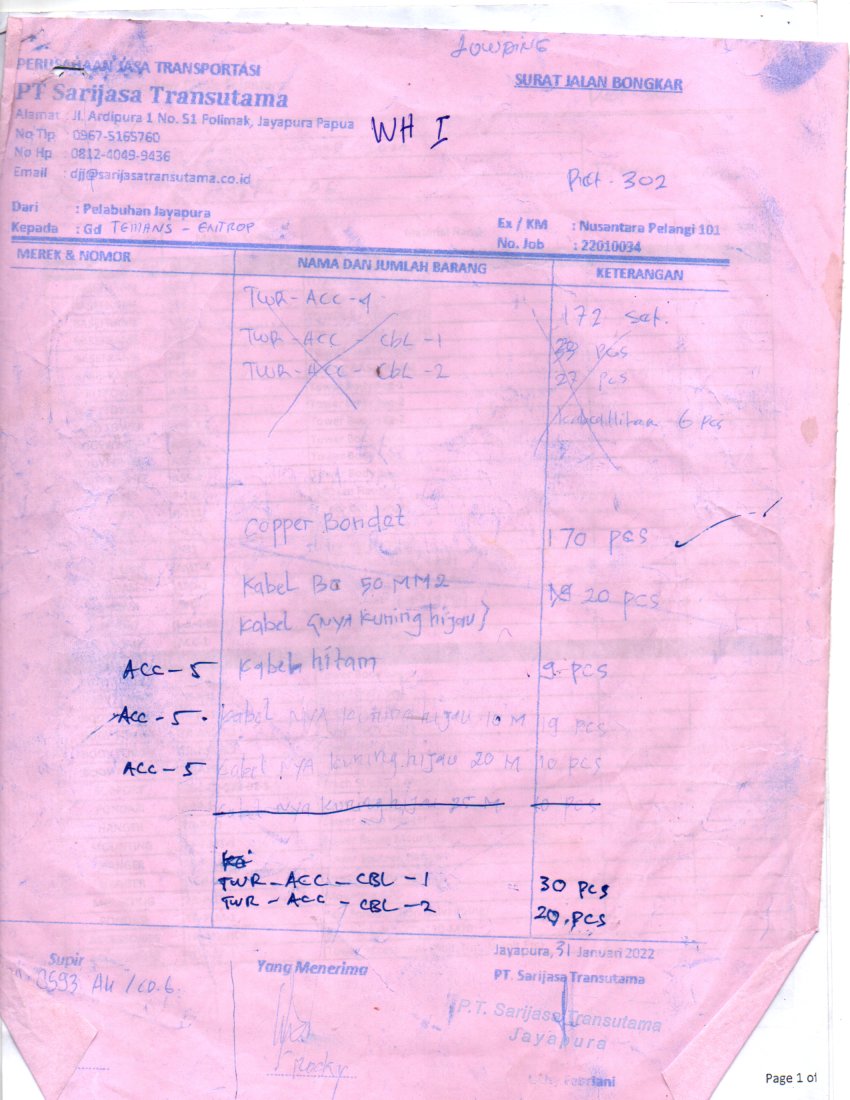 PERUSAHAAN JASA TRANSPORTASI
SURAT JALAN BONGKAR
PT Sarijasa Transutama
Alamat : Jl. Ardipura 1 No. 51 Polimak, Jayapura Papua
WH I
No Tlp : 0967-5165760
No Hp : 0812-4049-9436
Email : djj@sarijasatransutama.co.id
302
Dari : Pelabuhan Jayapura
Kepada : Gd TEMANS - ENTROP
Ex / KM : Nusantara Pelangi 101
No. Job : 22010034
MEREK & NOMOR NAMA DAN JUMLAH BARANG KETERANGAN
TWR-ACC-4 172 set.
TWR-ACC-CBL-1 pcs
TWR-ACC-CBL-2 27 pcs
6 pcs
Copper Bondet 170 pcs
Kabel Bc 50 MM2 20 pcs
Kabel (NYA Kuning hijau)
ACC-5 Kabel hitam 9 pcs
ACC-5. Kabel NYA kuning hijau 10 M 19 pcs
ACC-5 Kabel NYA kuning hijau 20 M 10 pcs
Kabel NYA kuning hijau M 10 pcs
TWR-ACC-CBL-1 30 pcs
TWR-ACC-CBL-2 20.pcs
Jayapura, 31 Januari 2022
Supir
Yang Menerima
PT. Sarijasa Transutama
P.T. Sarijasa Transutama
Jayapura
Rocky
Febriani
Page 1 of